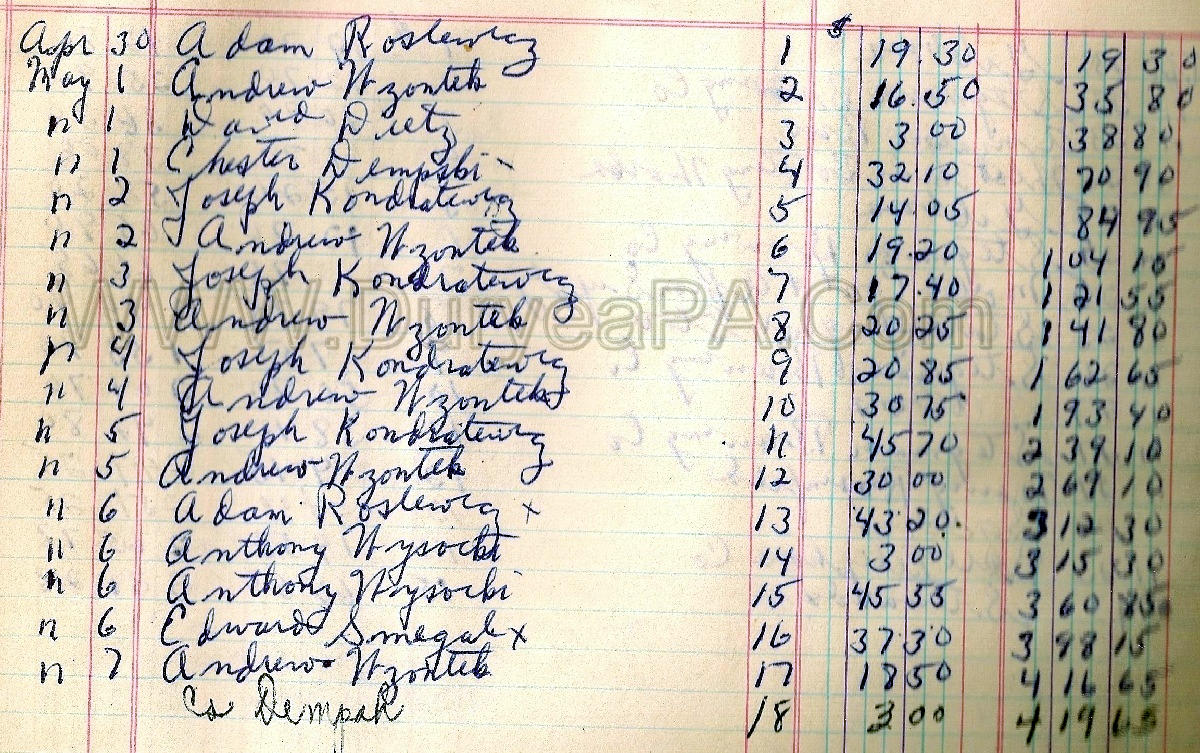 Apr 30 Adam Roslewicz 1 $ 19.30 19 30
May 1 Andrew Wzontek 2 16.50 35 80
" 1 David Dietz 3 3 00 38 80
" 1 Chester Dempski 4 32 10 70 90
" 2 Joseph Kondratewicz 5 14 05 84 95
" 2 Andrew Wzontek 6 19.20 104 15
" 3 Joseph Kondratewicz 7 17.40 121 55
" 3 Andrew Wzontek 8 20 25 141 80
" 4 Joseph Kondratewicz 9 20 85 162 65
" 4 Andrew Wzontek 10 30 75 193 40
" 5 Joseph Kondratewicz 11 45 70 239 10
" 5 Andrew Wzontek 12 30 00 269 10
" 6 Adam Roslewicz x 13 43 20. 312 30
" 6 Anthony Wysocki 14 3 00 315 30
" 6 Anthony Wysocki 15 45 55 360 85
" 6 Edward Smegal x 16 37 30 398 15
" 7 Andrew Wzontek 17 18 50 416 65
Co Dempak 18 3 00 419 65
WWW.DuryeaPA.Com